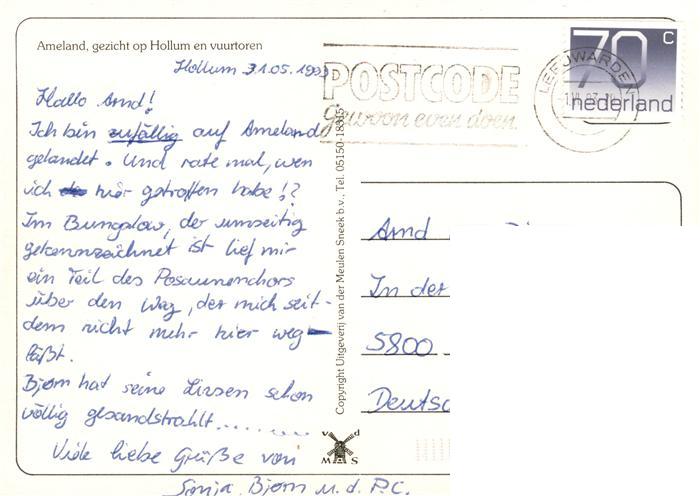 Ameland, gezicht op Hollum en vuurtoren
Hollum 31.05.1993
Hallo Arnd!
Ich bin zufällig auf Ameland
gelandet. Und rate mal, wen
ich hier getroffen habe!?
Im Bungalow, der umseitig
gekennzeichnet ist lief mir
ein Teil des Posaunenchors
über den Weg, der mich seit-
dem nicht mehr hier weg
läßt.
Bjørn hat seine Linsen schon
völlig gesandstrahlt.........
Viele liebe Grüße von
Sonja, Bjørn u. d. P.C.
Copyright Uitgeverij van der Meulen Sneek b.v., Tel. 05150-18315*
v d
M S
POSTCODE
Gewoon even doen.
LEEUWARDEN
70 c
nederland
Arnd
In der
5800
Deutsc